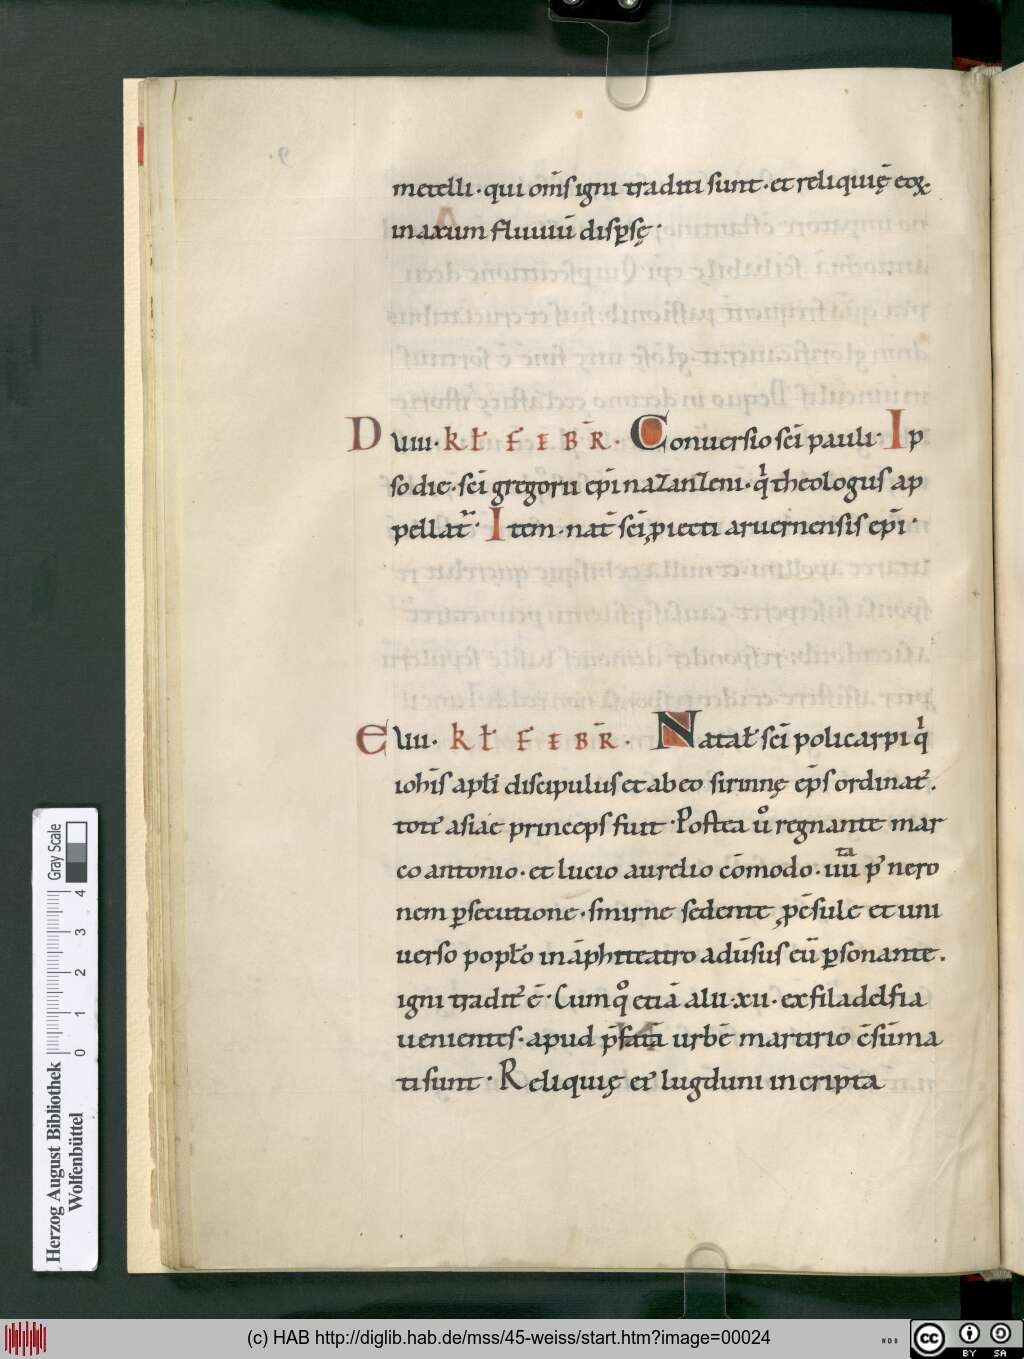 metelli · qui om̅s igni traditi sunt · et reliquię eoꝝ
in axum fluuiū disꝑsę ·
D uiii · kł febr̅ · Conuersio sc̅i pauli · Ip
so die · sc̅i gregorii ep̅i nazanzeni · qͥ theologus ap
pellat᷑ · Item · nat̅ sc̅i ꝓiecti aruernensis ep̅i ·
E uii · kł febr̅ · Natał sc̅i policarpi qͥ
ioh̅is apłi discipulus et ab eo sirinnę ep̅s ordinat᷑ ·
toti᷑ asiae princeps fuit · Postea uͦ regnante mar
co antonio · et lucio aurelio cōmodo · iiiitaū p᷑ nero
nem ꝑsecutione · smirne sedente ꝓcōsule et uni
uerso popło in āphiteatro aduersus eū ꝑsonante ·
igni tradit᷑ ē · Cumqͦ etiā alii · xii · ex filadelfia
uenientes · apud p̅fatā urbē martirio cōsūma
ti sunt · Reliquię ei᷑ lugduni in cripta
Herzog August Bibliothek
Wolfenbüttel
0 1 2 3 4
Gray Scale
(c) HAB http://diglib.hab.de/mss/45-weiss/start.htm?image=00024
cc BY SA